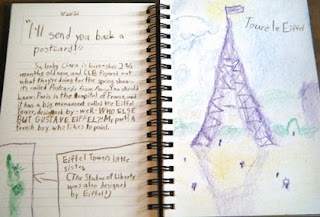 "I'll send you back a
postcard!"
So, baby Clara is here—she's 2 3/4
months old now, and CCB figured out
what they're doing for the spring show—
it's called Postcards from Paris. You should
know, Paris is the capital of France, and
it has a big monument called the Eiffel
Tower, designed by—well—WHO ELSE
BUT GUSTAVE EIFFEL?! My part? A
French boy who likes to paint.
Eiffel Tower's little
sister
(The Statue of Liberty
was also designed
by Eiffel!)
Tour le Eiffel